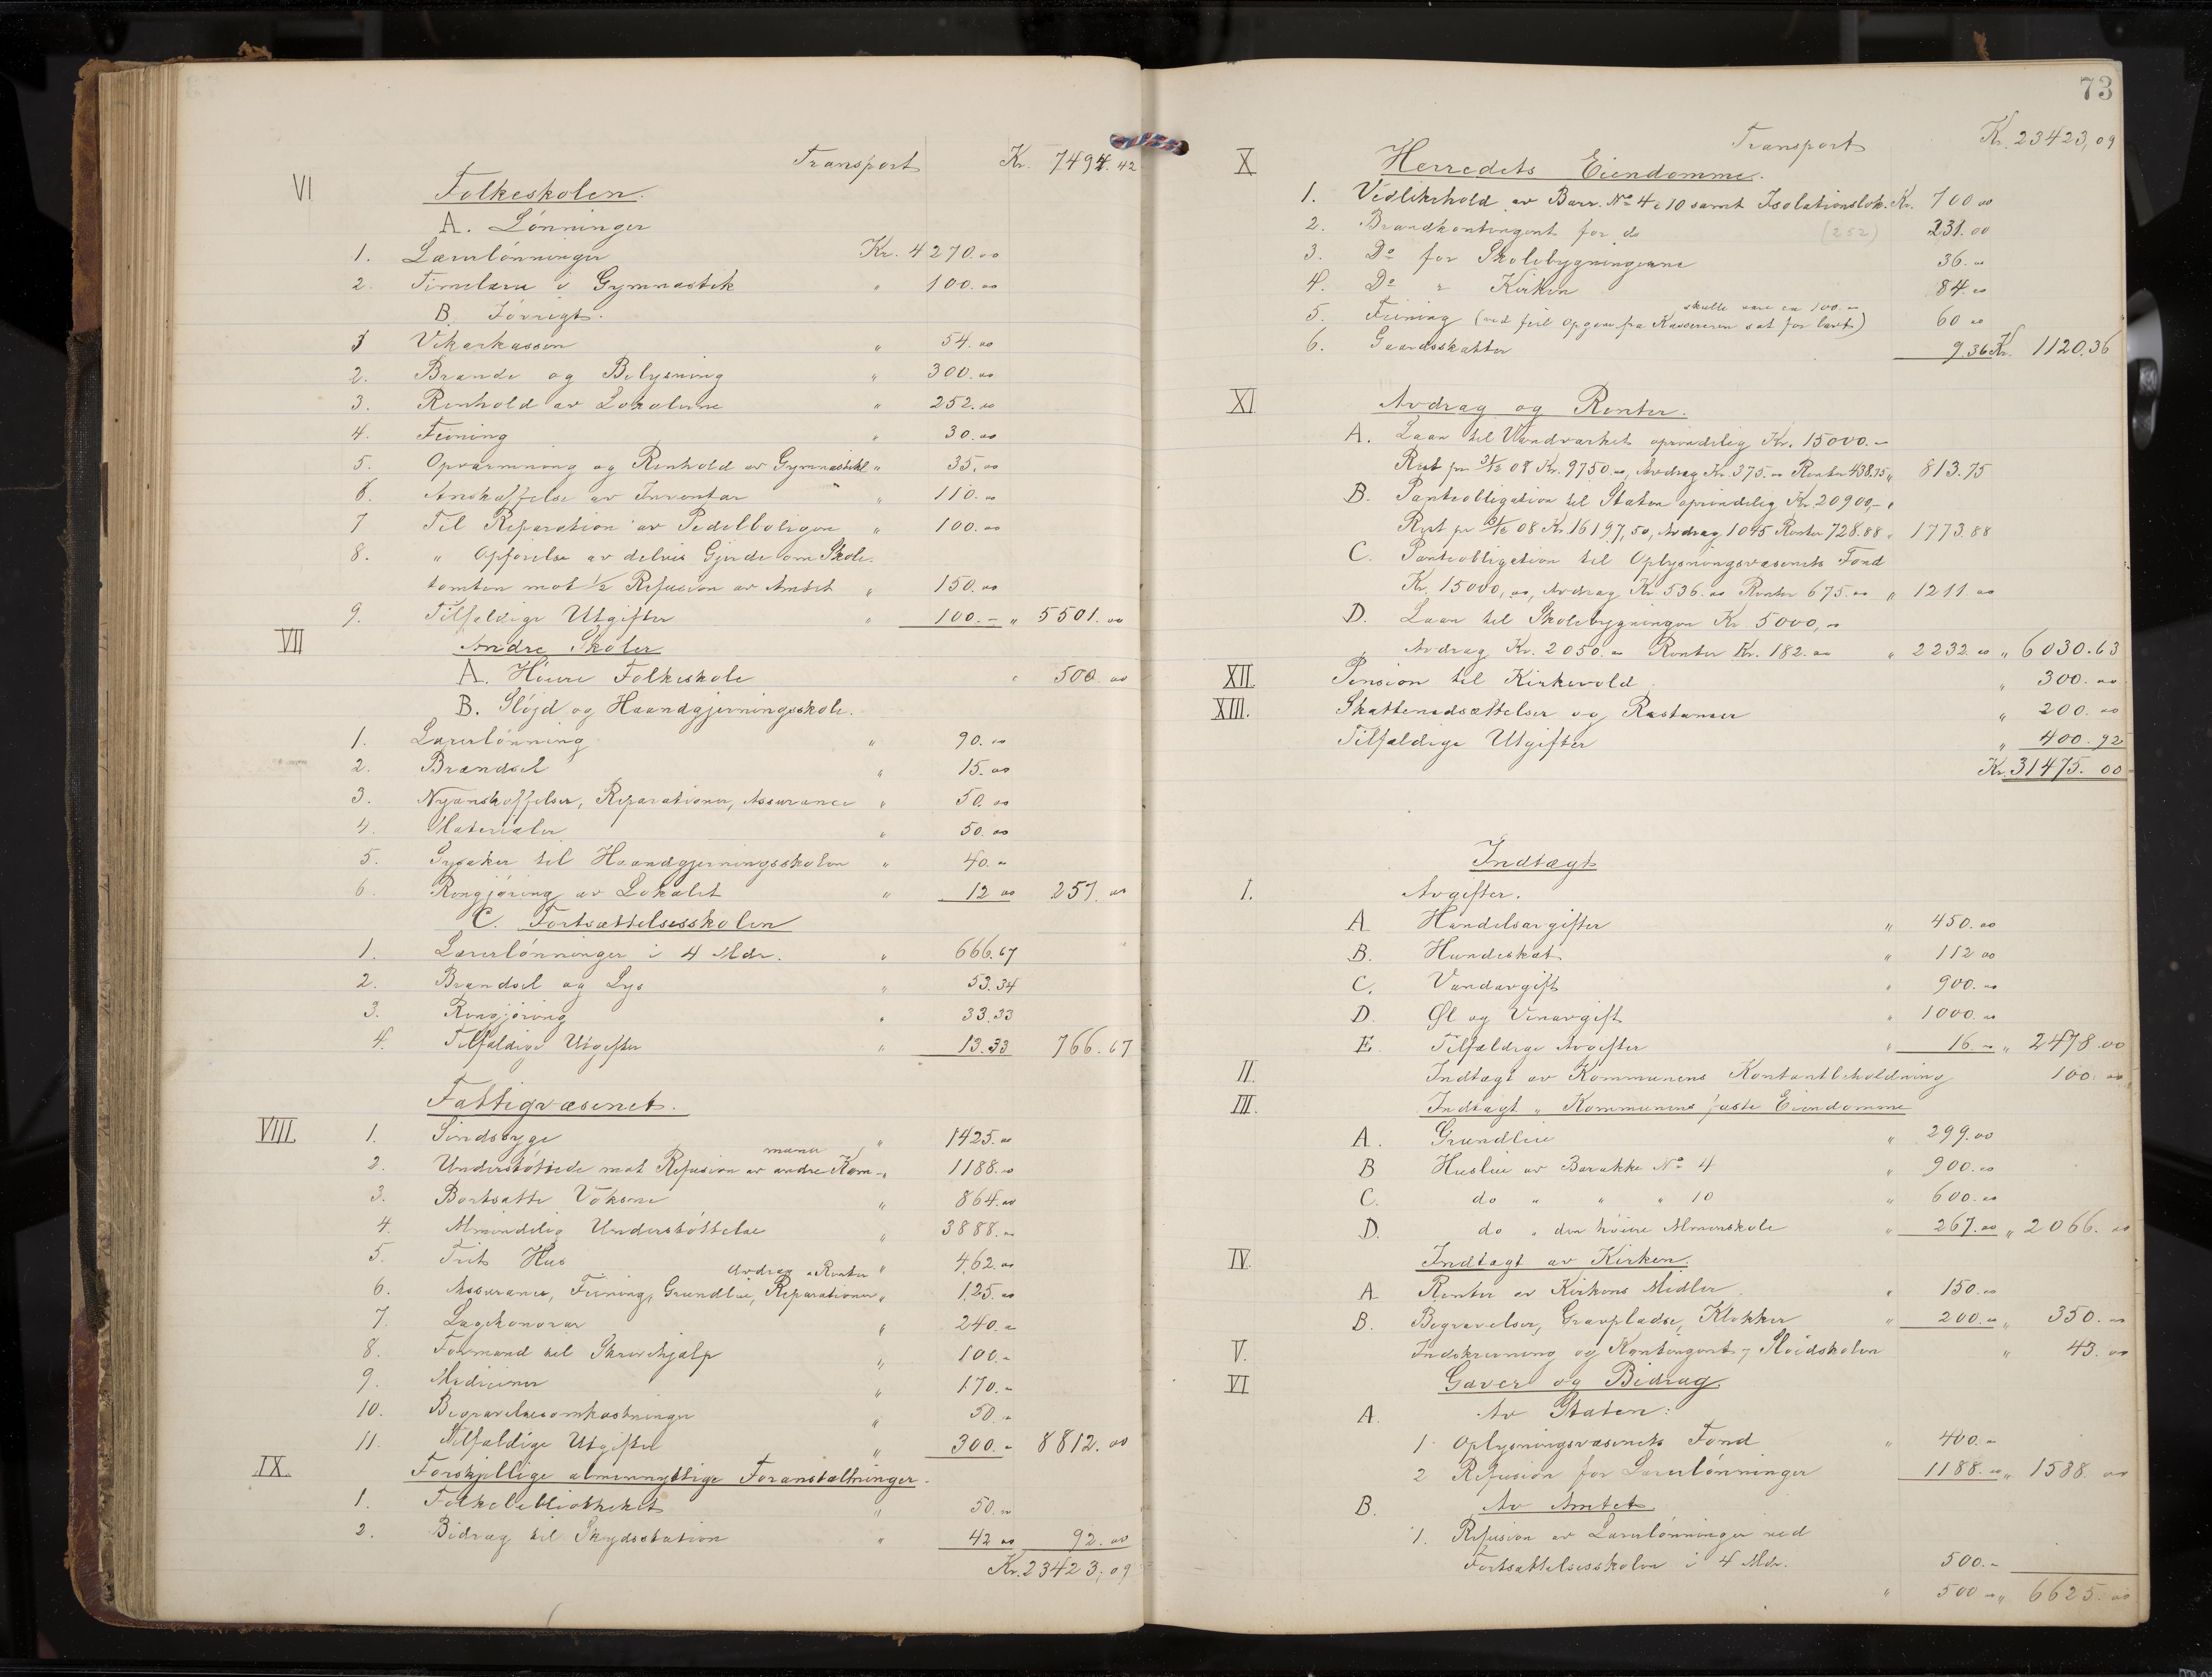 Transport Kr. 7494.42
VI Folkeskolen.
A. Lönninger
1. Lærerlönninger Kr. 4270.00
2. Timelærer i Gymnastik " 100.00
B. Iövrigt.
1 Vikarkassen " 54.00
2. Brænde og Belysning " 300.00
3. Renhold av Lokalerne " 252.00
4. Feining " 30.00
5. Opvarmning og Renhold av Gymnastikl " 35.00
6. Anskaffelse av Inventar " 110.00
7 Til Reparation av Pedelboligen " 100.00
8. " Opförelse av delvis Gjerde om Skole-
tomten mot 1/2 Refusion av Amtet " 150.00
9. Tilfældige Utgifter " 100.— " 5501.00
VII Andre Skoler
A. Höiere Folkeskole " 500.00
B. Slöjd og Haandgjerningsskole.
1. Lærerlönning " 90.00
2. Brændsel " 15.00
3. Nyanskaffelser, Reparationer, Assurance " 50.00
4. Materialer " 50.00
5. Sysaker til Haandgjerningsskolen " 40.-
6. Rengjöring av Lokalet " 12 00 257.00
C. Fortsættelsesskolen
1. Lærerlönninger i 4 Mdr. " 666.67
2. Brændsel og Lys " 53.34
3. Rengjöring " 33.33
4. Tilfældige Utgifter " 13.33 766.67
Fattigvæsenet.
VIII 1. Sindssyge " 1425.00
2. Understöttede mot Refusion av andre Kommuner " 1188.00
3. Bortsatte Voksne " 864.00
4. Almindelig Understöttelse " 3888.00
5. Frit Hus " 462.00
Avdrag o Renter
6. Assurance, Feining, Grundleie, Reparationer " 125.00
7. Lægehonorar " 240.-
8. Formand til Skrivehjælp " 100.-
9. Mediciner " 170.-
10. Begravelsesomkostninger " 50.-
11. Tilfældige Utgifter " 300.- 8812.00
IX. Forskjellige almennyttige Foranstaltninger.
1. Folkebibliotheket " 50.00
2. Bidrag til Skydsstation " 42 00 92.00
Kr. 23423,09
73
Transport Kr. 23423,09
X Herredets Eiendomme.
1. Vedlikehold av Barr. No 4 & 10 samt Isolationslok. Kr. 700 00
2. Brandkontingent for do (252) 231.00
3. Do for Skolebygningerne 36.00
4. Do " Kirken 84.00
skulle være ca 100.00
5. Feining (ved feil Opgave fra Kassereren sat for lavt) 60 00
6. Gaardsskatter 9.36 Kr. 1120,36
XI Avdrag og Renter.
A. Laan til Vandværket oprindelig Kr. 15000.-
Rest pr 31/12 08 Kr. 9750.00, Avdrag Kr. 375.00 Renter 438.75 " 813.75
B. Panteobligation til Staten oprindelig Kr 20900,-
Rest pr 31/12 08 Kr. 16197,50, Avdrag 1045 Renter 728.88 " 1773.88
C. Panteobligation til Oplysningsvæsenets Fond
Kr. 15000,00, Avdrag Kr. 536.00 Renter 675.00 " 1211.00
D. Laan til Skolebygningen Kr 5000,00
Avdrag Kr. 2050.00 Renter Kr. 182.00 " 2232.00 " 6030.63
XII. Pension til Kirkevold " 300.00
XIII. Skattenedsættelser og Restanser " 200.00
Tilfældige Utgifter " 400.92
Kr. 31475.00
Indtægt
I. Avgifter.
A Handelsavgifter " 450.00
B. Hundeskat " 112 00
C. Vandavgift " 900.00
D. Øl og Vinavgift " 1000.00
E. Tilfældige Avgifter " 16.00 " 2478.00
II. Indtægt av Kommunens Kontantbeholdning 100.00
III. Indtægt " Kommunens faste Eiendomme
A. Grundleie " 299.00
B Husleie av Barakke No 4 " 900.00
C. do " " " 10 " 600.00
D. do " den höiere Almenskole " 267.00 " 2066.00
IV. Indtægt av Kirken.
A Renter av Kirkens Midler " 150.00
B. Begravelser, Gravpladse, Klokker " 200.00 " 350.00
V. Indskrivning og Kontingent, Slöidskolen " 43.00
VI Gaver og Bidrag.
A. Av Staten:
1. Oplysningsvæsenets Fond " 400.-
2 Refusion for Lærerlönninger 1188.00 " 1588.00
B. Av Amtet
1. Refusion av Lærerlönninger ved
Fortsættelsesskolen i 4 Mdr. 500.-
" 500 00 " 6625.00